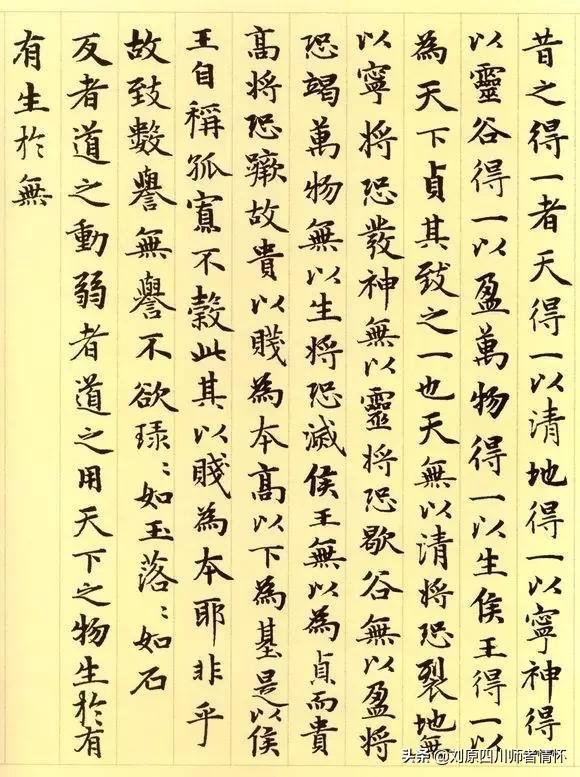 昔之得一者天得一以清地得一以寧神得
以靈谷得一以盈萬物得一以生侯王得一以
為天下貞其致之一也天無以清將恐裂地無
以寧將恐發神無以靈將恐歇谷無以盈將
恐竭萬物無以生將恐滅侯王無以為貞而貴
高將恐蹶故貴以賤為本高以下為基是以侯
王自稱孤寡不穀此其以賤為本耶非乎
故致數譽無譽不欲琭〻如玉落〻如石
反者道之動弱者道之用天下之物生於有
有生於無
头条 @刘原四川师者情怀